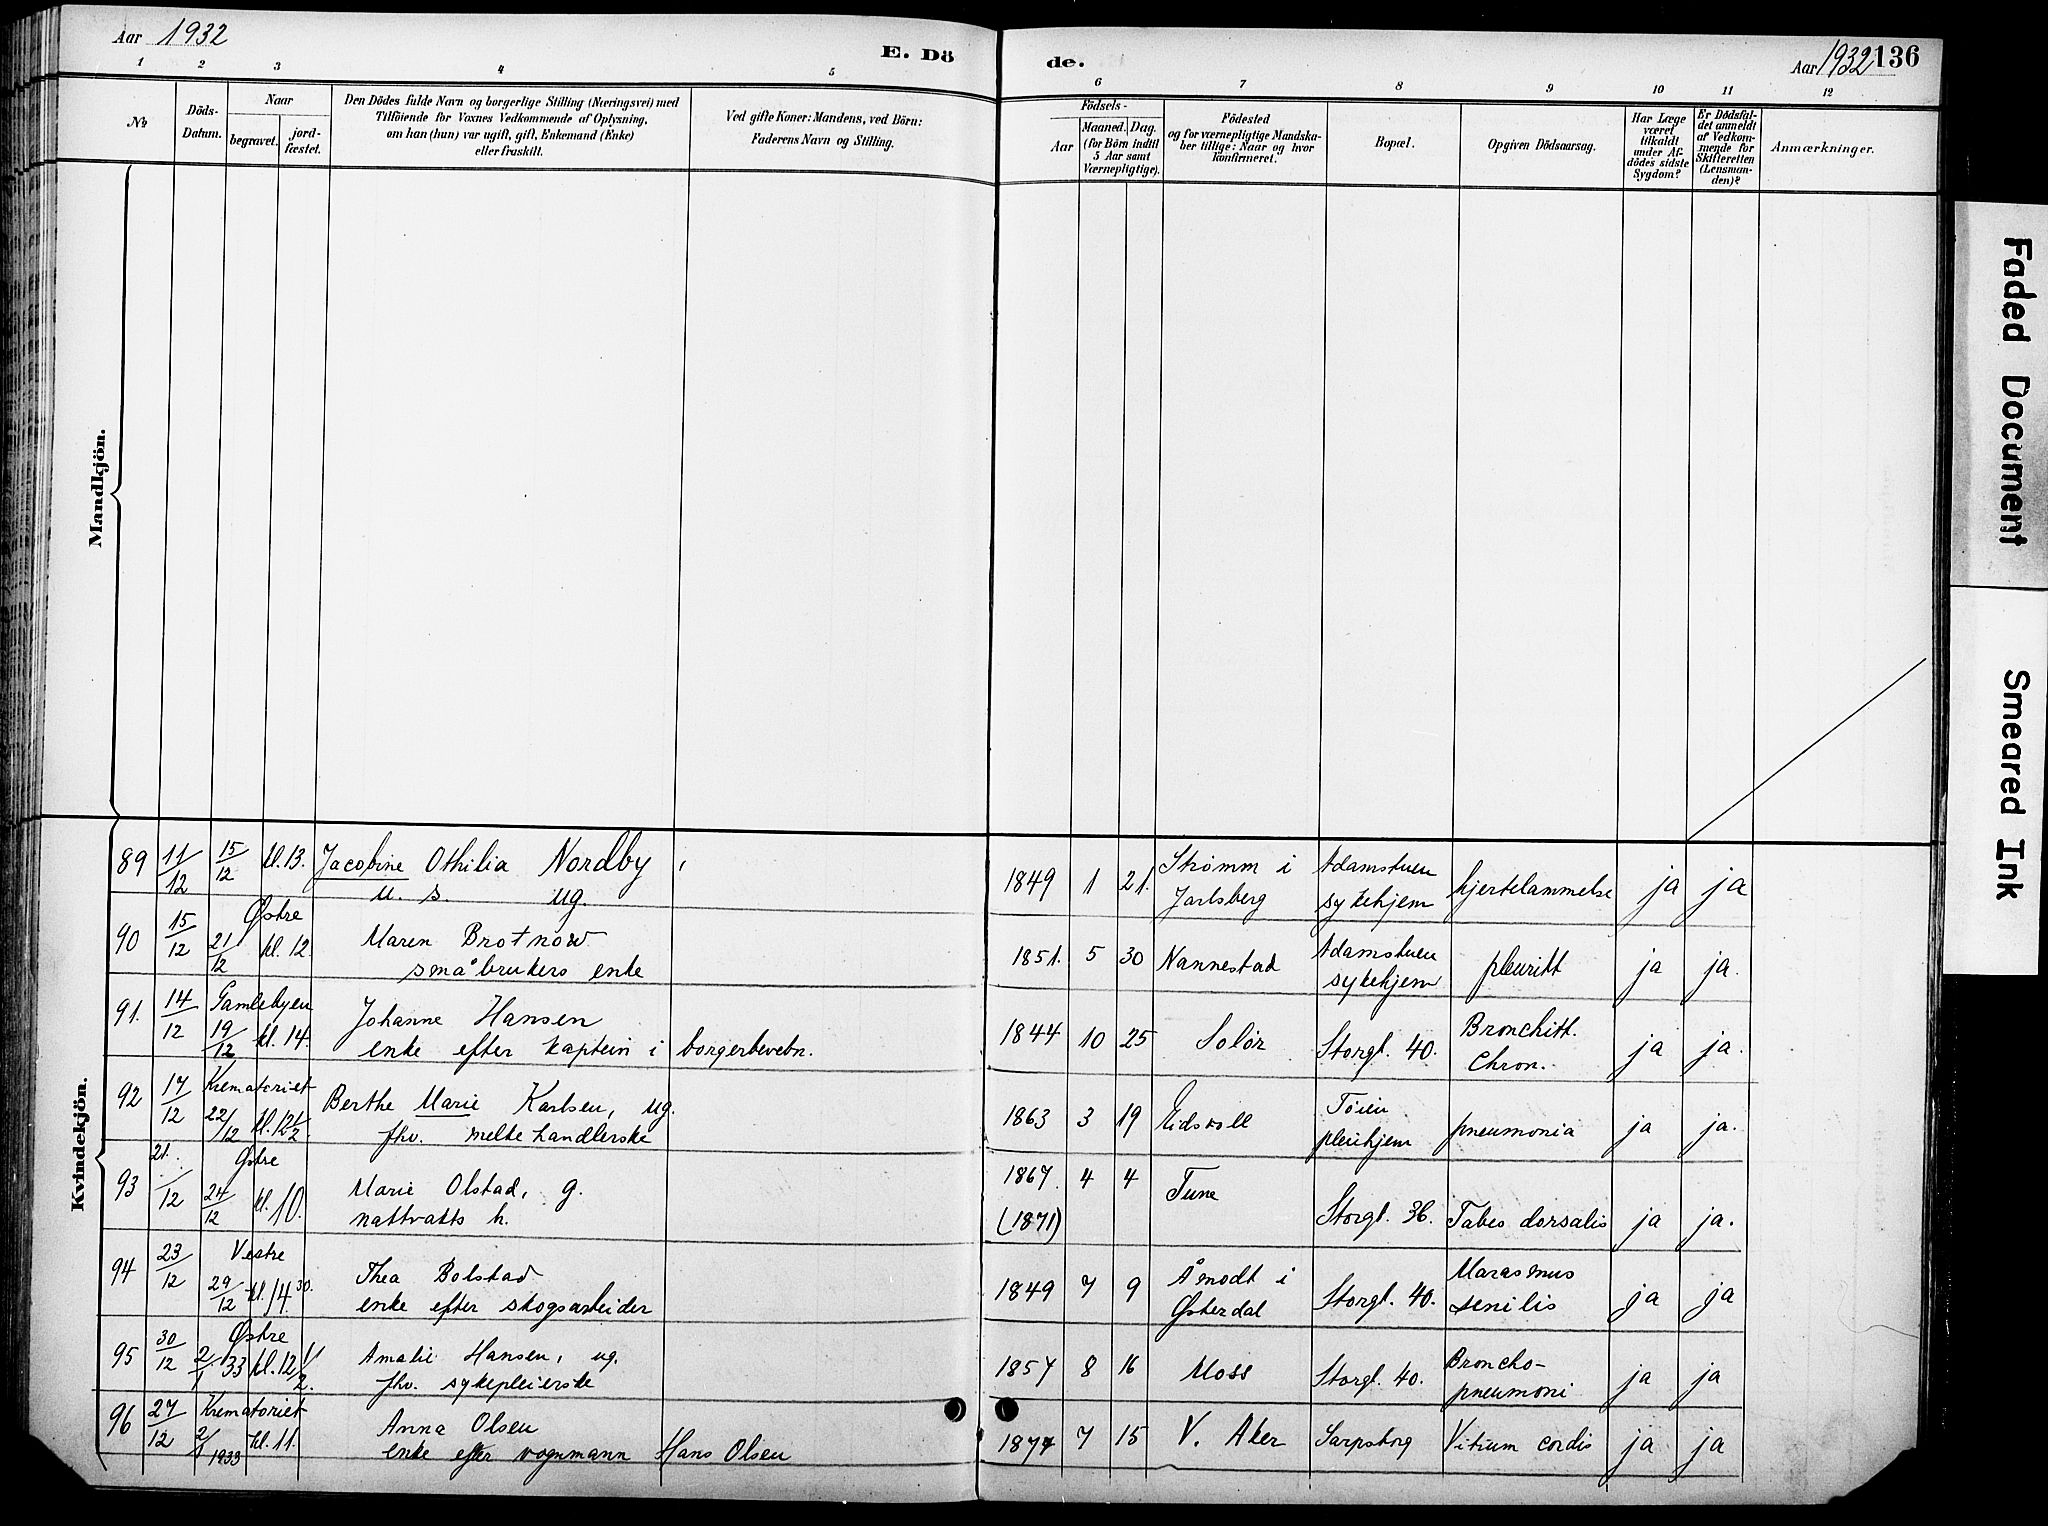 Aar 1932
E. Dö
de.
Aar 1932 136
1 2 3 4 5 6 7 8 9 10 11 12
№
Döds-
Datum.
Naar
begravet.
jord-
fæstet.
Den Dödes fulde Navn og borgerlige Stilling (Næringsvei) med
Tilföiende for Voxnes Vedkommende af Oplysning,
om han (hun) var ugift, gift, Enkemand (Enke)
eller fraskilt.
Ved gifte Koner: Mandens, ved Börn:
Faderens Navn og Stilling.
Födsels-
Aar
Maaned. Dag.
(for Börn indtil
5 Aar samt
Værnepligtige).
Födested
og for værnepligtige Mandska-
ber tillige: Naar og hvor
konfirmeret.
Bopæl.
Opgiven Dödsaarsag.
Har Læge
været
tilkaldt
under Af-
dödes sidste
Sygdom?
Er Dödsfal-
det anmeldt
af Vedkom-
mende for
Skifteretten
(Lensman-
den)?
Anmærkninger.
Mandkjön.
Kvindekjön.
89 11/12 15/12 kl. 13. Jacobine Othilia Nordby
u. s. ug.
1849 1 21. Strømm i Jarlsberg Adamstuen sykehjem hjertelammelse ja ja
90 15/12 Østre 21/12 kl. 12. Maren Brotnow
småbrukers enke
1851. 5 30 Nannestad Adamstuen sykehjem pleuritt ja ja.
91. 14/12 Gamlebyen 19/12 kl. 14. Johanne Hansen
enke efter kaptein i borgerbevebn.
1844 10 25 Solør Storgt. 40. Bronchitt. Chron. ja ja.
92 17/12 Krematoriet 22/12 kl. 12 1/2. Berthe Marie Karlsen, ug.
fhv. melkehandlerske
1863 3 19 Eidsvoll Tøien pleiehjem pneumonia ja ja.
93 21./12 Østre 24/12 kl. 10. Marie Olstad, g.
nattvakts h.
1867. (1871) 4 4 Tune Storgt. 36. Tabes dorsalis ja ja.
94 23/12 Vestre 29/12 kl. 14 30. Thea Bolstad
enke efter skogsarbeider
1849 7 9 Åmodt i Østerdal Storgt. 40. Marasmus senilis ja ja
95 30/12 Østre 2/1 33 kl. 12 1/2. Amalie Hansen, ug.
fhv. sykepleierske
1857 8 16 Moss Storgt. 40. Broncho-pneumoni ja ja
96 27/12 Krematoriet 2/1 1933 kl. 11. Anna Olsen
enke efter vognmann Hans Olsen
1877 7 15 V. Aker Sarpsborg Vitium cordis ja ja
Faded Document
Smeared Ink